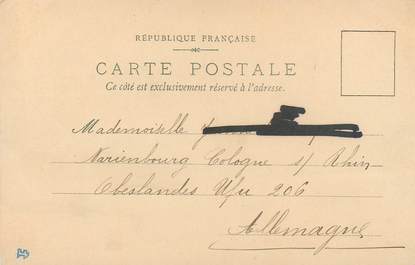 RÉPUBLIQUE FRANÇAISE
CARTE POSTALE
Ce côté est exclusivement réservé à l'adresse.
Mademoiselle
Marienbourg Cologne s/ Rhin
Obeslandes Ufu 206
Allemagne